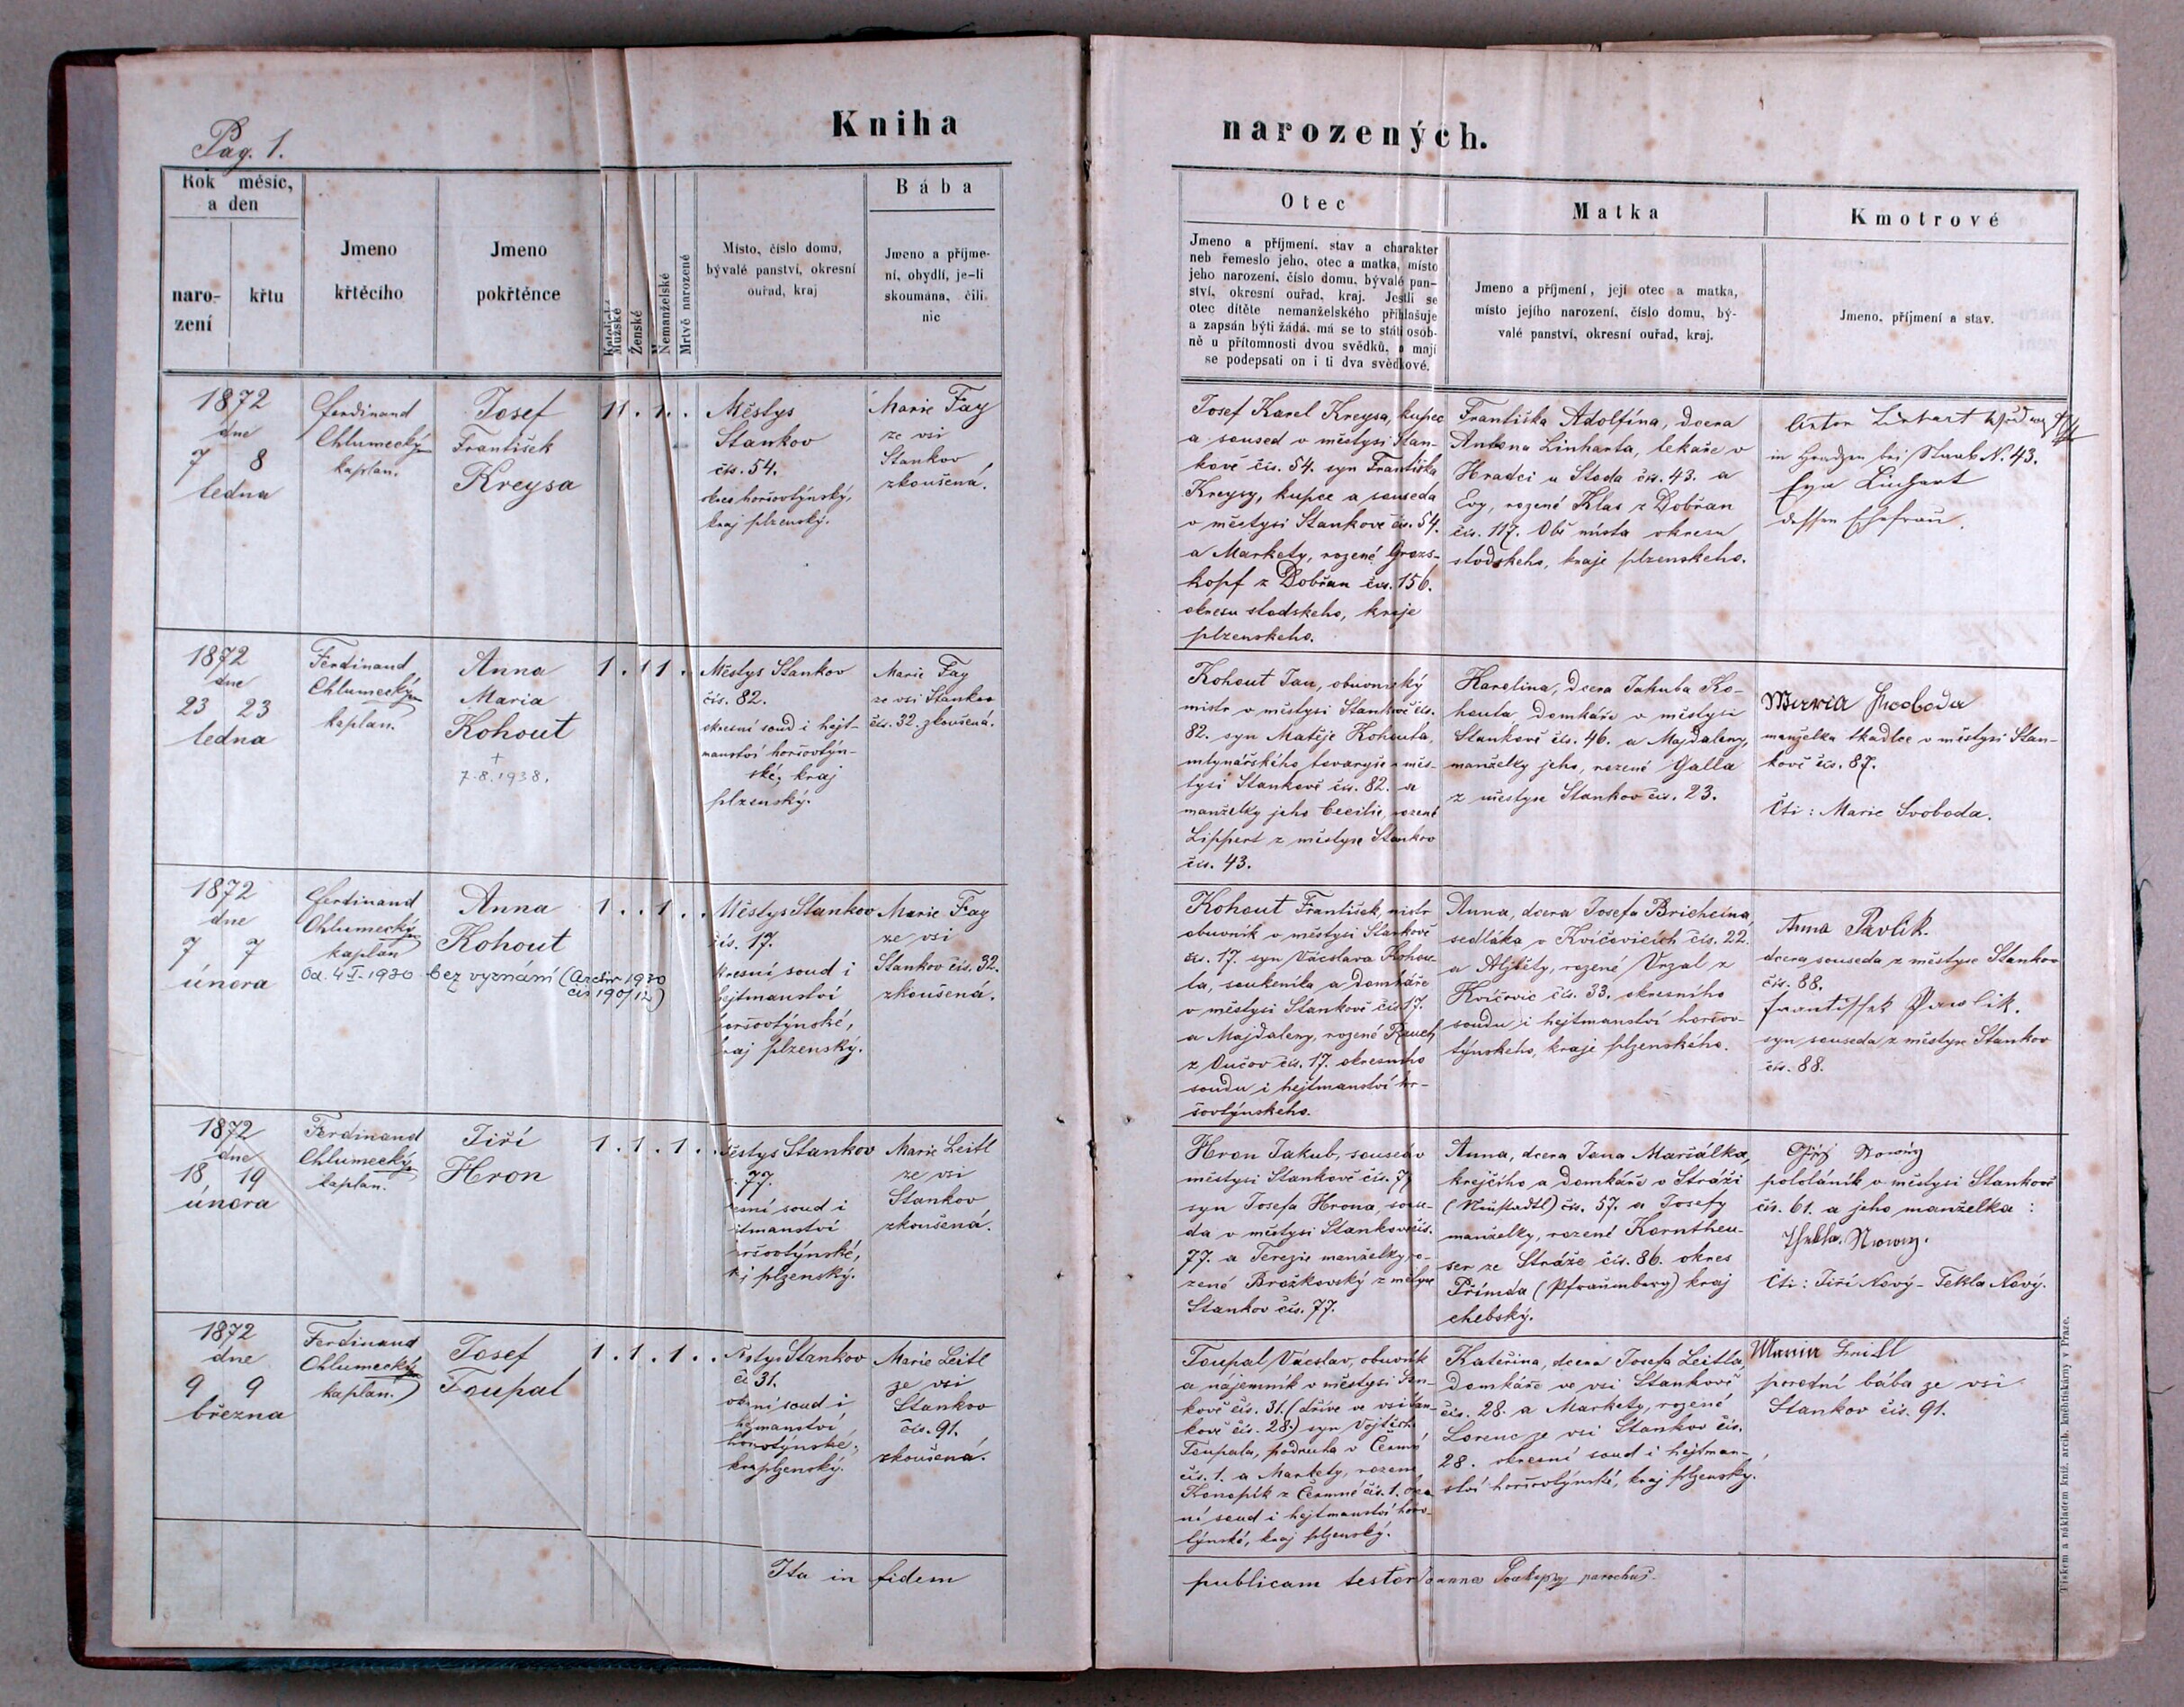 Pag. 1.
Kniha narozených.
Rok měsíc, a den
naro-
zení
křtu
Jmeno
křtěcího
Jmeno
pokřtěnce
Mužské
Ženské
Nemanželské
Mrtvě narozené
Místo, číslo domu,
bývalé panství, okresní
ouřad, kraj
Bába
Jmeno a příjme-
ní, obydlí, je-li
skoumána, čili
nic
Otec
Jmeno a příjmení, stav a charakter
neb řemeslo jeho, otec a matka, místo
jeho narození, číslo domu, bývalé pan-
ství, okresní ouřad, kraj. Jestli se
otec dítěte nemanželského přihlašuje
a zapsán býti žádá, má se to státi osob-
ně u přítomnosti dvou svědků, a mají
se podepsati on i ti dva svědkové.
Matka
Jmeno a příjmení, její otec a matka,
místo jejího narození, číslo domu, bý-
valé panství, okresní ouřad, kraj.
Kmotrové
Jmeno, příjmení a stav.
1872
dne
7 8
ledna
Ferdinand
Chlumecký
kaplan.
Josef
František
Kreysa
Městys
Stankov
čís. 54.
okres horšovtýnský,
kraj plzenský.
Marie Fay
ze vsi
Stankov
zkoušená.
Josef Karel Kreysa, kupec
a soused v městysi Stan-
kově čís. 54. syn Františka
Kreysy, kupce a souseda
v městysi Stankově čís. 54.
a Markety, rozené Grozs-
kopf z Dobřan čís. 156.
okresu stodskeho, kraje
plzenskeho.
Františka Adolfína, dcera
Antona Linharta, lekaře v
Hradci u Stoda čís. 43. a
Evy, rozené Klas z Dobřan
čís. 117. Obě místa okresu
stodskeho, kraje plzenskeho.
Anton Linhart
in Hradzen bei Staab N. 43.
Eva Linhart
dessen Ehefrau.
1872
dne
23 23
ledna
Ferdinand
Chlumecký
kaplan.
Anna
Maria
Kohout
+
7.8.1938.
1 . 1 1 .
Městys Stankov
čís. 82.
okresní soud i hejt-
manství horšovtýn-
ské, kraj
plzenský.
Marie Fay
ze vsi Stankov
čís. 32. zkoušená.
Kohout Jan, obuvnický
mistr v městysi Stankově čís.
82. syn Matěje Kohouta,
mlynářského tovaryse v měs-
tysi Stankově čís. 82. a
manželky jeho Cecilie, rozené
Lippert z městyse Stankov
čís. 43.
Karolina, dcera Jakuba Ko-
houta, domkáře v městysi
Stankově čís. 46. a Majdaleny,
manželky jeho, rozené Galla
z městyse Stankov čís. 23.
Maria Swoboda
manželka tkadlce v městysi Stan-
kově čís. 87.
Čti: Marie Svoboda.
1872
dne
7 7
února
Ferdinand
Chlumecký
kaplan
Anna
Kohout
Od. 4.I.1930 bez vyznání (Archiv 1930
čís 190/12)
1 . . 1 . .
Městys Stankov
čís. 17.
okresní soud i
hejtmanství
horšovtýnské,
kraj plzenský.
Marie Fay
ze vsi
Stankov čís. 32.
zkoušená.
Kohout František, mistr
obuvník v městysi Stankově
čís. 17. syn Václava Kohou-
ta, soukeníka a domkáře
v městysi Stankově čís 17.
a Majdaleny, rozené Rauch
z Oučov čís. 17. okresního
soudu i hejtmanství hor-
šovtýnského.
Anna, dcera Josefa Brichcína,
sedláka v Kvíčovicích čís. 22.
a Alžběty, rozené Vrzal z
Kvíčovic čís. 33. okresního
soudu i hejtmanství horšov-
týnskeho, kraje plzenského.
Anna Pavlik.
dcera souseda z městyse Stankov
čís. 88.
Frantischek Pawlik.
syn souseda z městyse Stankov
čís. 88.
1872
dne
18 19
února
Ferdinand
Chlumecký
kaplan.
Jiří
Hron
1 . 1 . 1 . .
Městys Stankov
77.
okresní soud i
hejtmanství
horšovtýnské,
kraj plzenský.
Marie Leitl
ze vsi
Stankov
zkoušená.
Hron Jakub, soused v
městysi Stankově čís. 77
syn Josefa Hrona, souse-
da v městysi Stankově čís.
77. a Terezie manželky, ro-
zené Brožkovský z městyse
Stankov čís. 77.
Anna, dcera Jana Maršálka,
krejčího a domkáře v Stráži
(Neustadtl) čís. 57. a Josefy
manželky, rozené Kornheu-
ser ze Stráže čís. 86. okres
Přimda (Pfraumberg) kraj
chebský.
Nowÿ
pololáník v městysi Stankově
čís. 61. a jeho manželka:
Thekla Nowy.
Čti: Jiří Nový - Tekla Nový.
1872
dne
9 9
března
Ferdinand
Chlumecký
kaplan.
Josef
Toupal
1 . 1 . 1 . .
Městys Stankov
čís 31.
okresní soud i
hejtmanství
horšovtýnské,
kraj plzenský.
Marie Leitl
ze vsi
Stankov
čís. 91.
zkoušená.
Toupal Václav, obuvník
a nájemník v městysi Stan-
kově čís. 31. (dříve ve vsi Stan-
kově čís. 28.) syn Vojtěcha
Toupala, podruha v Čermné
čís. 1. a Markety, rozené
Konopík z Čermné čís. 1. okres-
ní soud i hejtmanství horšov-
týnské, kraj plzenský.
Kateřina, dcera Josefa Leitla,
domkáře ve vsi Stankově
čís. 28. a Markety, rozené
Lorenc ze vsi Stankov čís.
28. okresní soud i hejtman-
ství horšovtýnské, kraj plzenský.
Maria Leitl
porodní bába ze vsi
Stankov čís. 91.
Ita in fidem publicam testor Joannes parochus.
Tiskem a nákladem kníž. arcib. knihtiskárny v Praze.